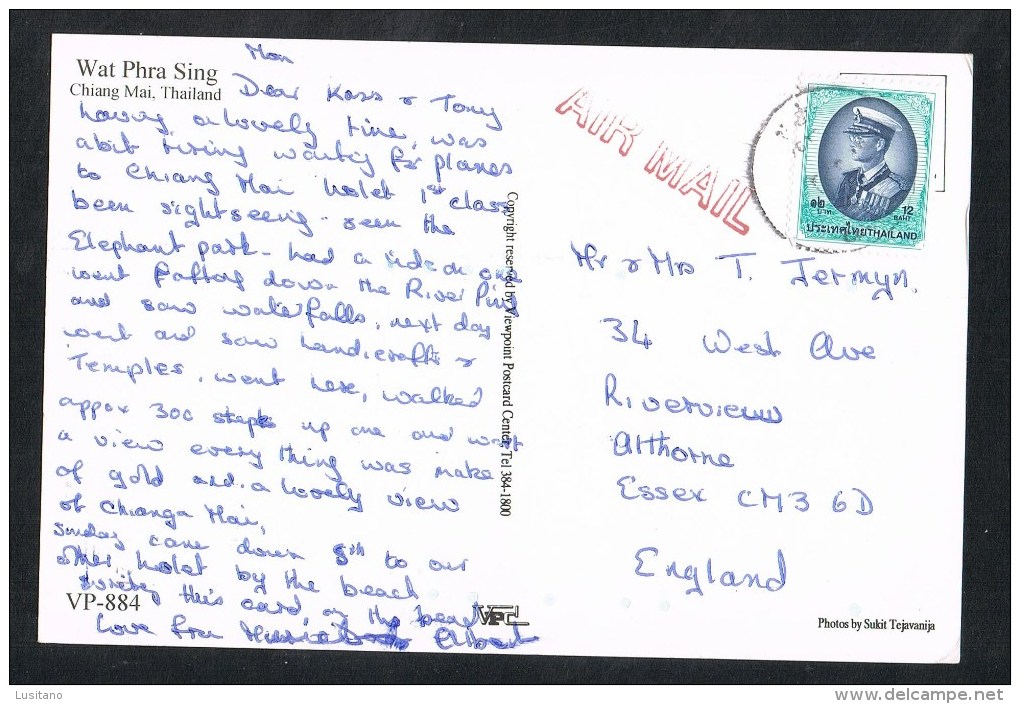 Wat Phra Sing
Chiang Mai, Thailand
Mon
Dear Kass & Tony
having a lovely time, was
abit tiring waiting for planes
to Chiang Mai hotel 1st class
been sightseeing - seen the
Elephant park - had a ride on one
went rafting down the River Ping
and saw waterfalls, next day
went and saw handicrafts &
Temples, went here, walked
appox 300 steps up one and what
a view every thing was make
of gold and a lovely view
of Chianga Mai,
Sunday came down 5th to our
other hotel by the beach
this card on the beach
Love from Albert
VP-884
AIR MAIL
๑๒
บาท
12
BAHT
ประเทศไทย THAILAND
Mr & Mrs T. Jermyn.
34 West Ave
Riverview
Althorne
Essex CM3 6D
England
Copyright reserved by Viewpoint Postcard Center, Tel 384-1800
VPC
Photos by Sukit Tejavanija
Lusitano
www.delcampe.net